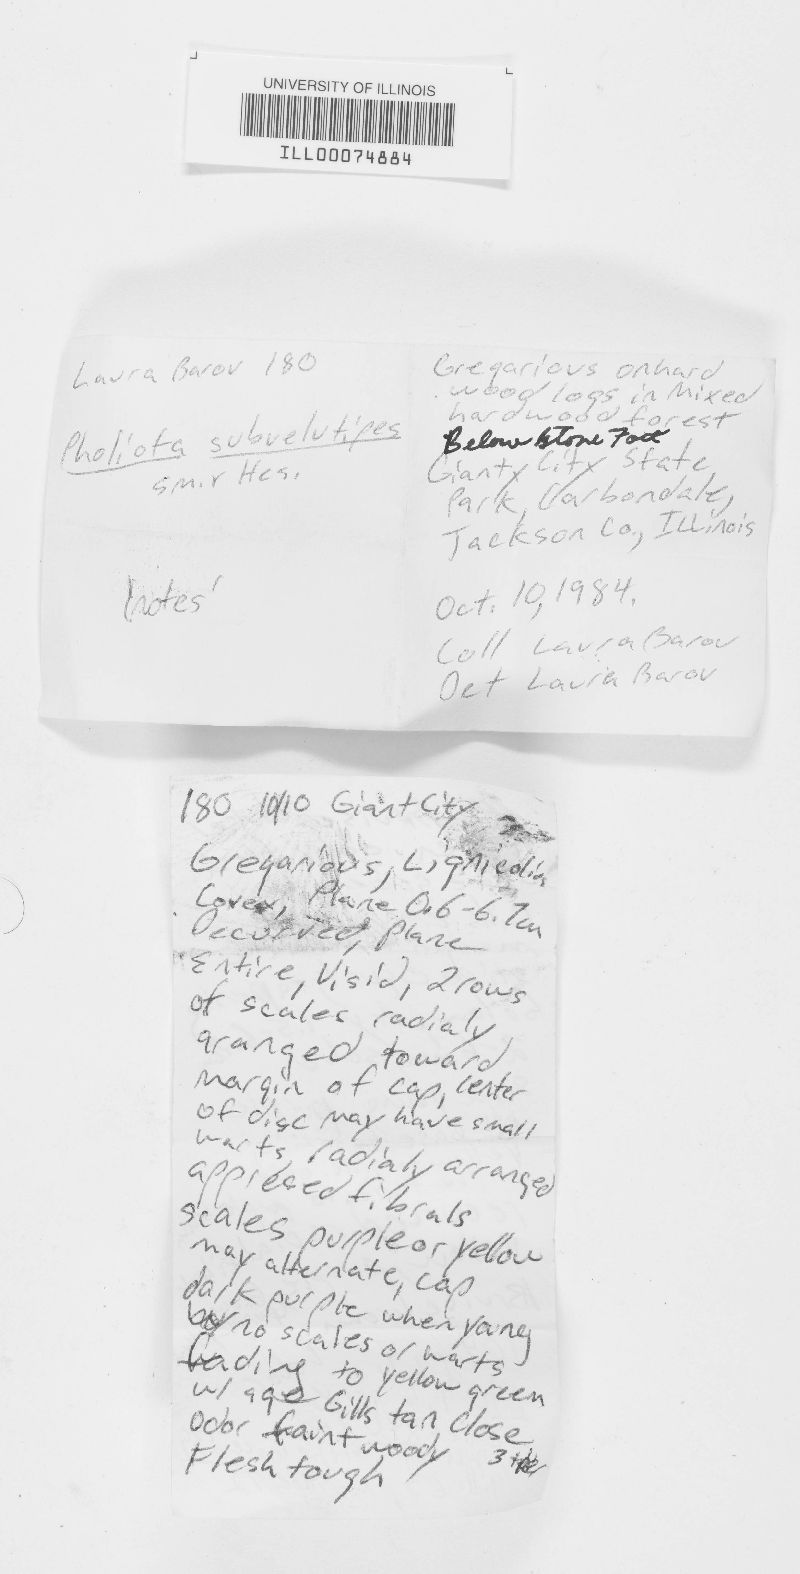 UNIVERSITY OF ILLINOIS
ILL00074884
Laura Barov 180
Pholiota subvelutipes
Sm. & Hes.
Notes
Gregarious on hard
wood logs in Mixed
hardwood forest
Below Stone Fort
Giant City State
Park, Carbondale,
Jackson Co., Illinois
Oct. 10, 1984.
Coll Laura Barov
Det Laura Barov
180 10/10 Giant City
Gregarious, Lignicolin
Covex, Plane 0.6-6.7cm
Decurved, plane
Entire, Visid, 2 rows
of scales radialy
aranged toward
margin of cap, center
of disc may have small
warts, radialy arranged
appresed fibrals
scales purple or yellow
may alternate, cap
dark purple when young
no scales or warts
fading to yellow green
w/ age Gills tan close
Odor faint woody 3 tier
Flesh tough